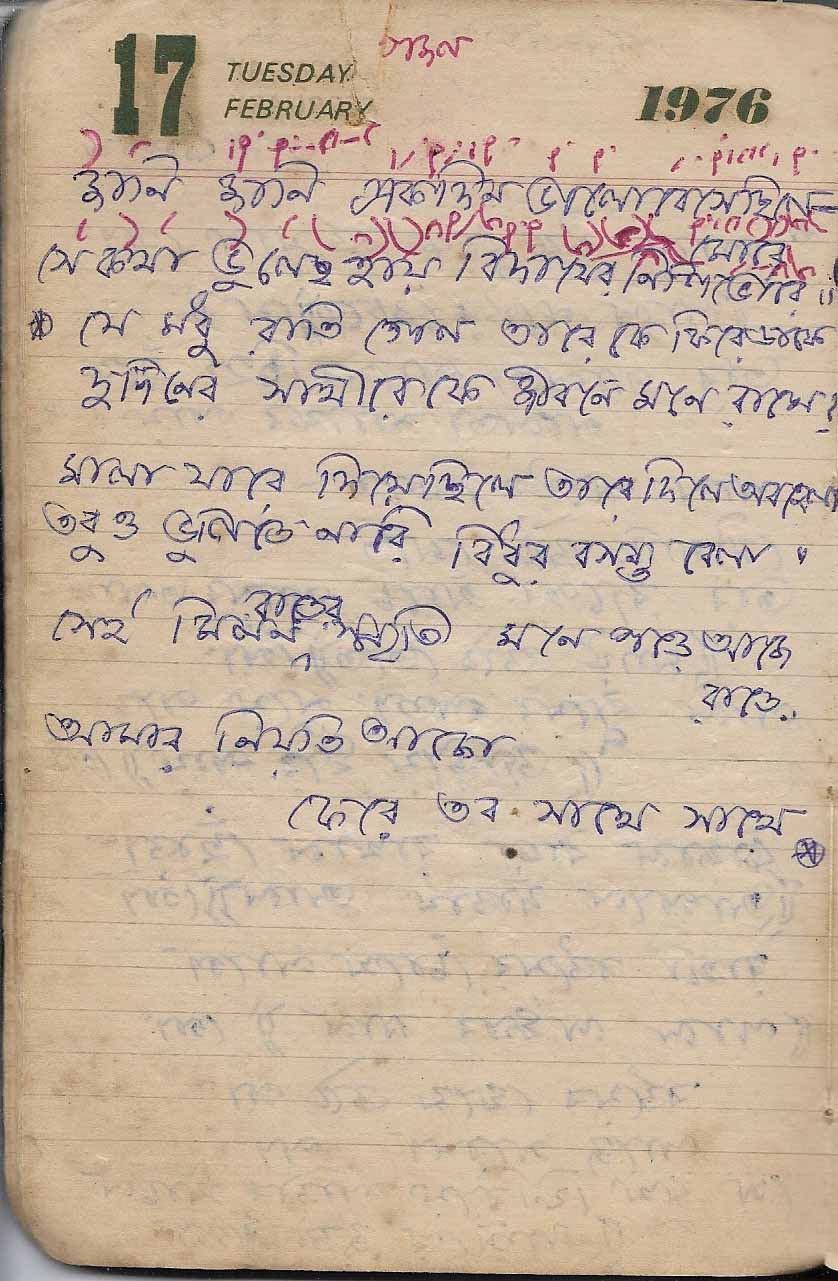 17 TUESDAY FEBRUARY 1976
গজল
জানি জানি একদিন ভালোবেসেছিলে মোরে
সে কথা ভুলেছ হায় বিদায়ের নিশিভোরে॥
সে মধু রাতি গেল তারে কে ফিরে ডাকে
দুদিনের সাথীরে কে জীবনে মনে রাখে?
মালা যারে দিয়েছিলে তারে দিলে অবহেলা
তবুও ভুলিতে নারি বিধুর বসন্ত বেলা।
সেই মিলন রাতের স্মৃতি মনে পড়ে আজে
রাতে
আমার নিয়তি আজো
ফেরে তব সাথে সাথে